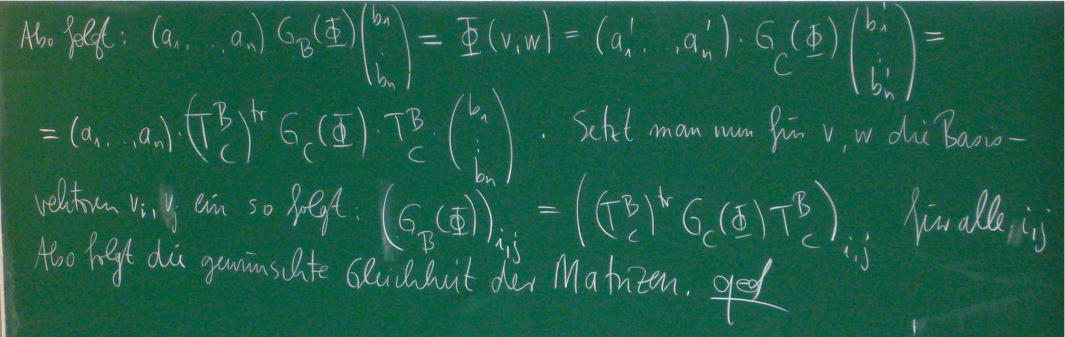 Also folgt: (a₁, ..., aₙ) G_B(Φ) (b₁ ⋮ bₙ) = Φ(v,w) = (a₁', ..., aₙ') · G_C(Φ) (b₁' ⋮ bₙ') =
= (a₁, ..., aₙ) · (T_C^B)^tr G_C(Φ) · T_C^B · (b₁ ⋮ bₙ) . Setzt man nun für v, w die Basis-
vektoren vᵢ, vⱼ ein so folgt: (G_B(Φ))_{i,j} = ((T_C^B)^tr G_C(Φ) T_C^B)_{i,j} für alle i,j
Also folgt die gewünschte Gleichheit der Matrizen. qed